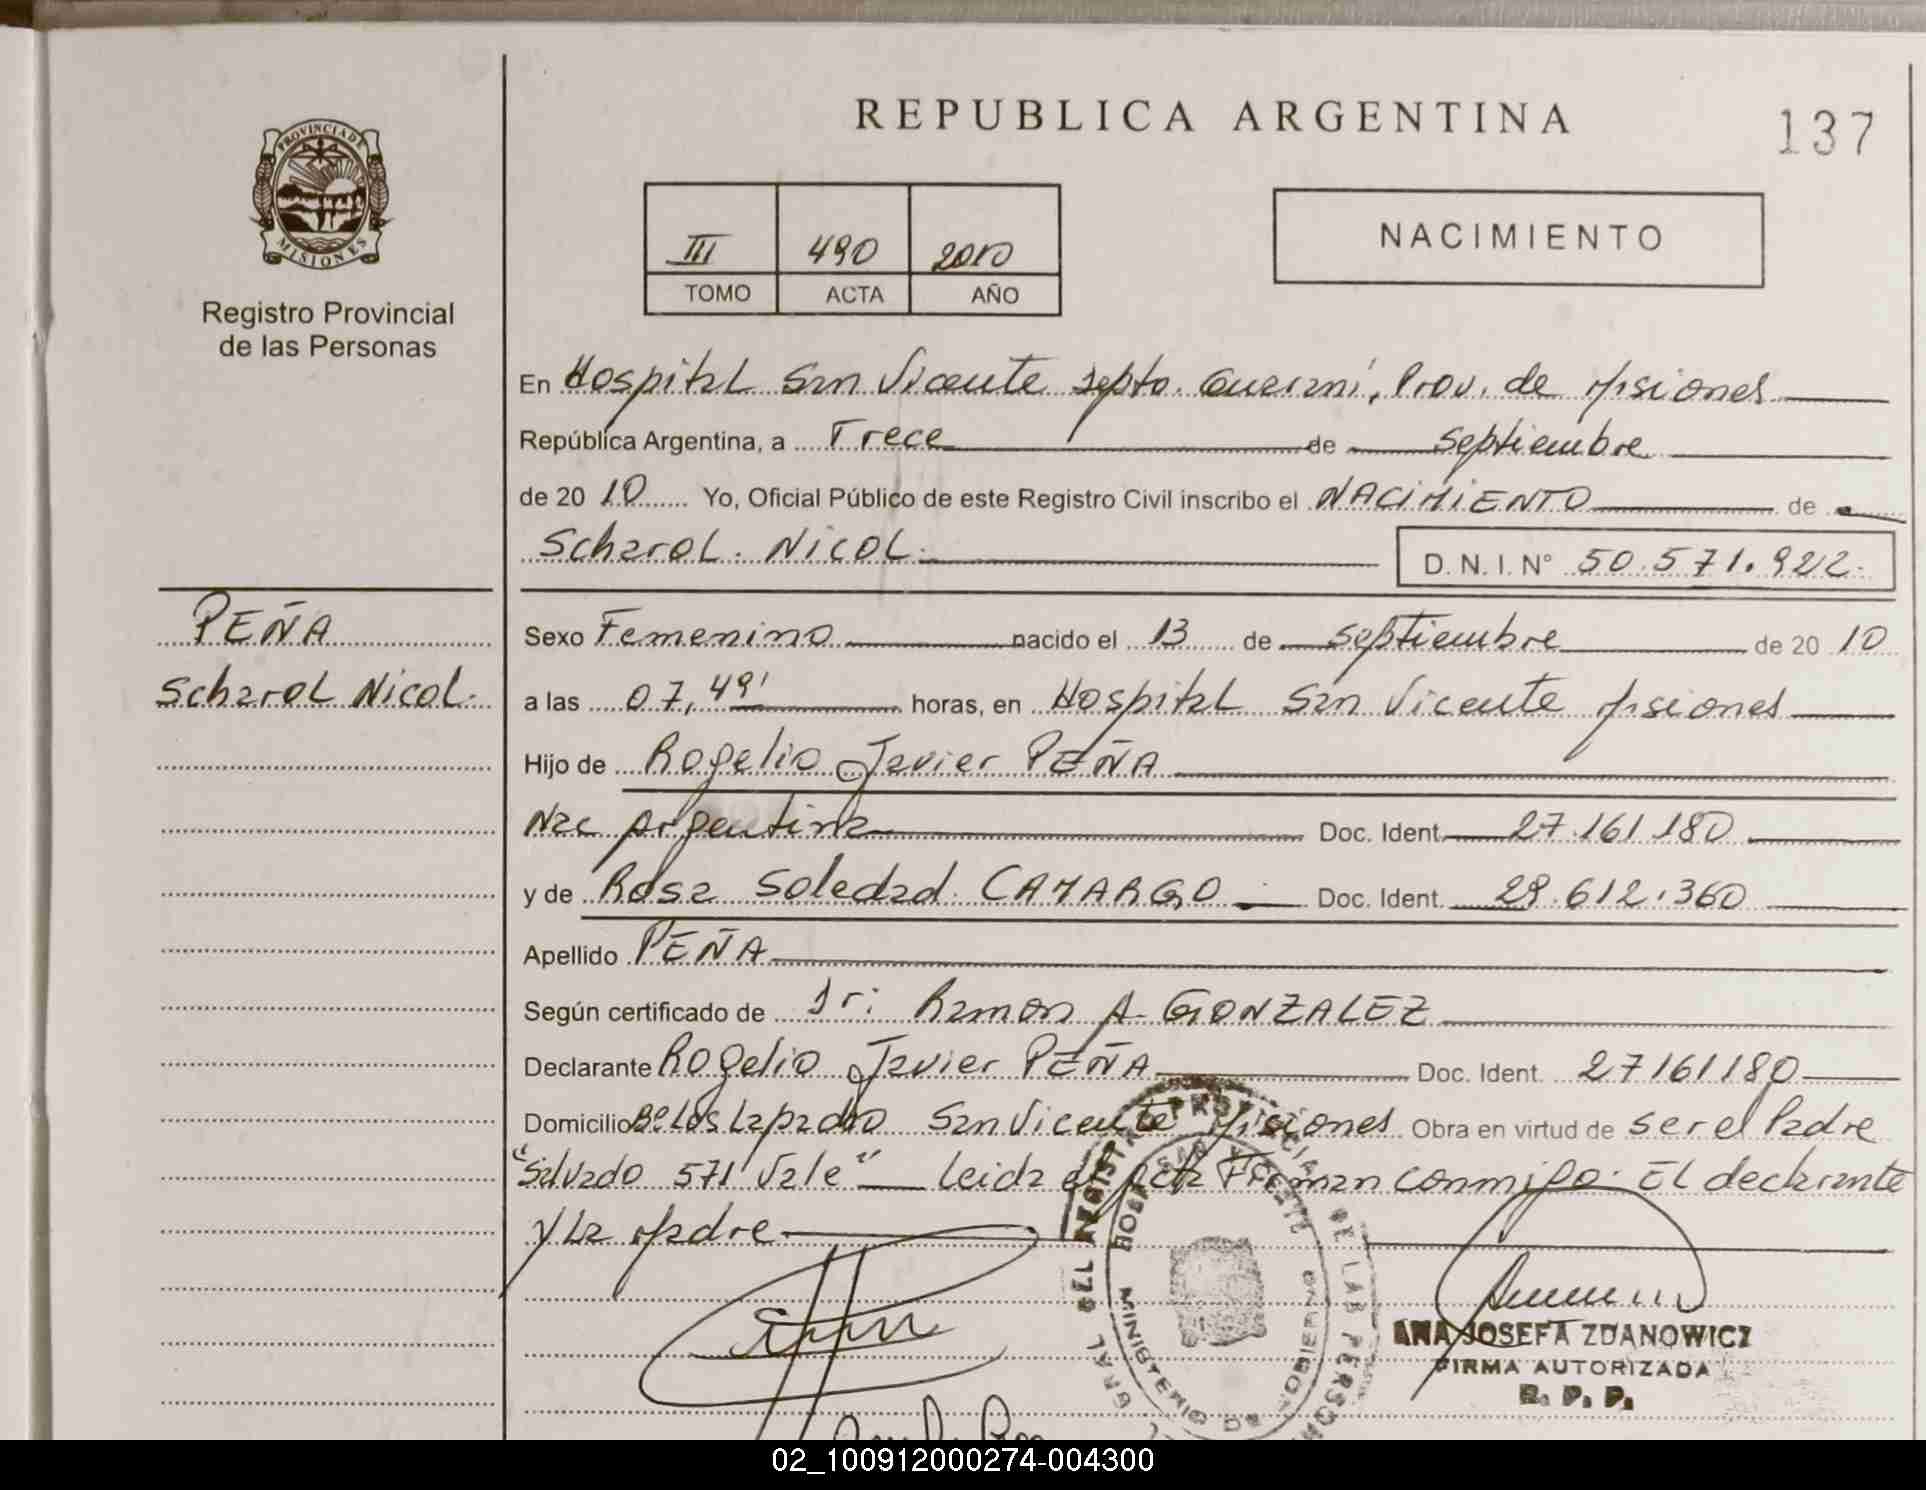 REPUBLICA ARGENTINA
137
PROVINCIA DE
MISIONES
Registro Provincial
de las Personas
III 490 2010
TOMO ACTA AÑO
NACIMIENTO
En Hospital San Vicente Depto. Guaraní, Prov. de Misiones
República Argentina, a Trece de Septiembre
de 20 10 Yo, Oficial Público de este Registro Civil inscribo el NACIMIENTO de
Scharol Nicol.
D.N.I.N° 50.571.922.
PEÑA
Scharol Nicol.
Sexo Femenino nacido el 13 de septiembre de 20 10
a las 07,49' horas, en Hospital San Vicente Misiones
Hijo de Rogelio Javier PEÑA
Nac Argentina Doc. Ident. 27.161.180
y de Rosa Soledad CAMARGO Doc. Ident. 29.612.360
Apellido PEÑA
Según certificado de Dr: Ramon A. GONZALEZ
Declarante Rogelio Javier PEÑA Doc. Ident. 27161180
Domicilio Bº Los Lapacho San Vicente Misiones Obra en virtud de ser el Padre
"Salvado 571 Vale" Leida el Acta Firman conmigo. El declarante
y La Madre
ANA JOSEFA ZDANOWICZ
FIRMA AUTORIZADA
R. P. P.
02_100912000274-004300